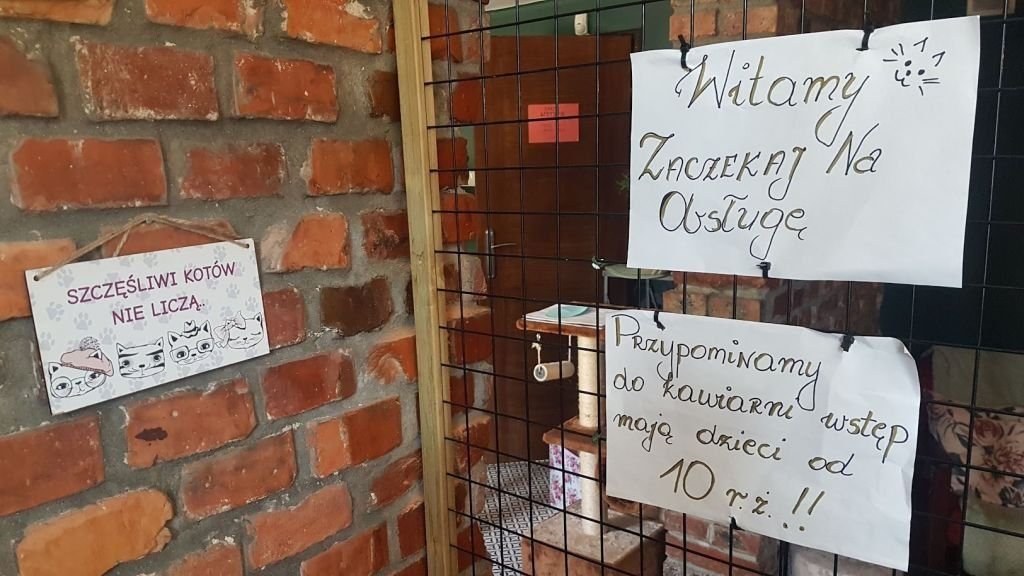 SZCZĘŚLIWI KOTÓW
NIE LICZĄ.
Witamy
Zaczekaj Na
Obsługę
Przypominamy
do kawiarni wstęp
mają dzieci od
10 r.ż.!!